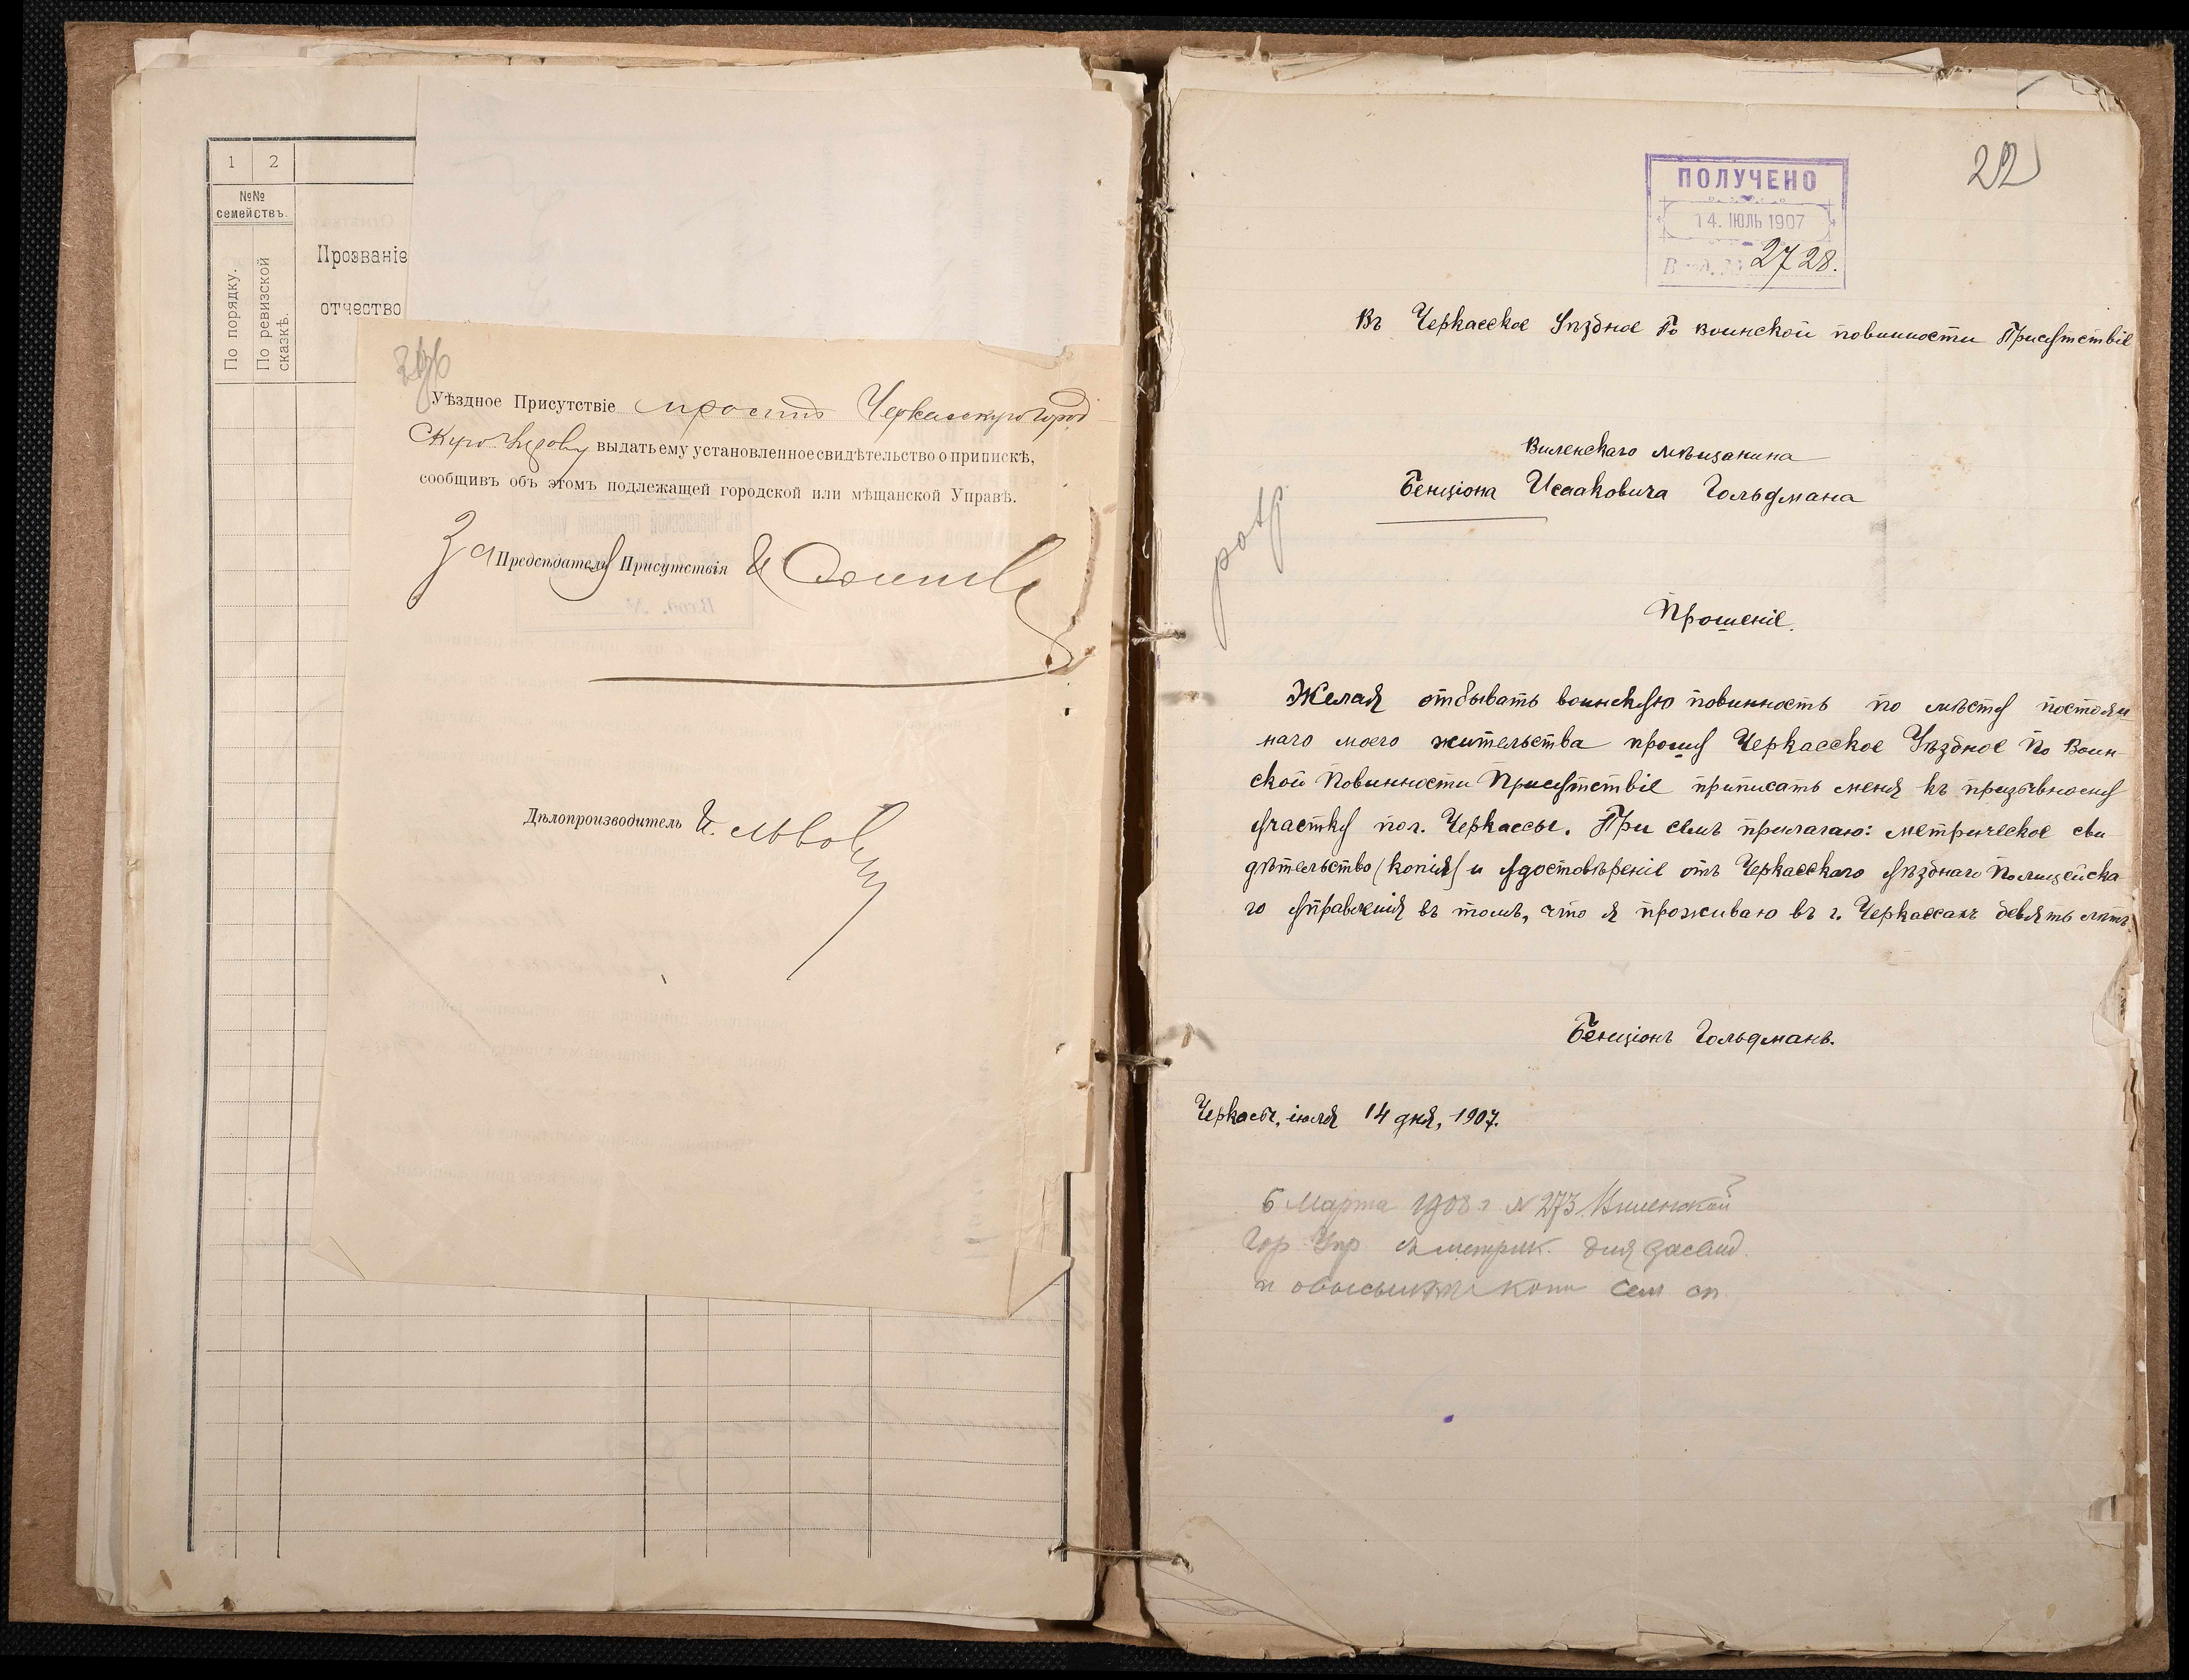 1 2
№№
семействъ.
По порядку.
По ревизской
сказкѣ.
Прозваніе
отчество
Уѣздное Присутствіе проситъ Черкасскую Город
скую Управу выдать ему установленное свидѣтельство о припискѣ,
сообщивъ объ этомъ подлежащей городской или мѣщанской Управѣ.
За Предсѣдателя Присутствія
Дѣлопроизводитель И.
22
ПОЛУЧЕНО
14. ІЮЛЬ 1907
2728.
Въ Черкасское Уѣздное По воинской повинности Присутствіе
Виленскаго мѣщанина
Бенціона Исааковича Гольдмана
Прошеніе.
Желая отбывать воинскую повинность по мѣсту постоян
наго моего жительства прошу Черкасское Уѣздное По Воин
ской Повинности Присутствіе приписать меня къ призывному
участку по г. Черкассы. При семъ прилагаю: метрическое сви
дѣтельство (копія) и удостовѣреніе отъ Черкасскаго уѣзднаго Полицейска
го управленія въ томъ, что я проживаю въ г. Черкассахъ девять лѣтъ.
Бенціонъ Гольдманъ.
Черкасы, іюля 14 дня, 1907.
6 Марта 1908 г № 273 Виленской
Гор Упр метрик. для засвид.
и высылки копи сем сп